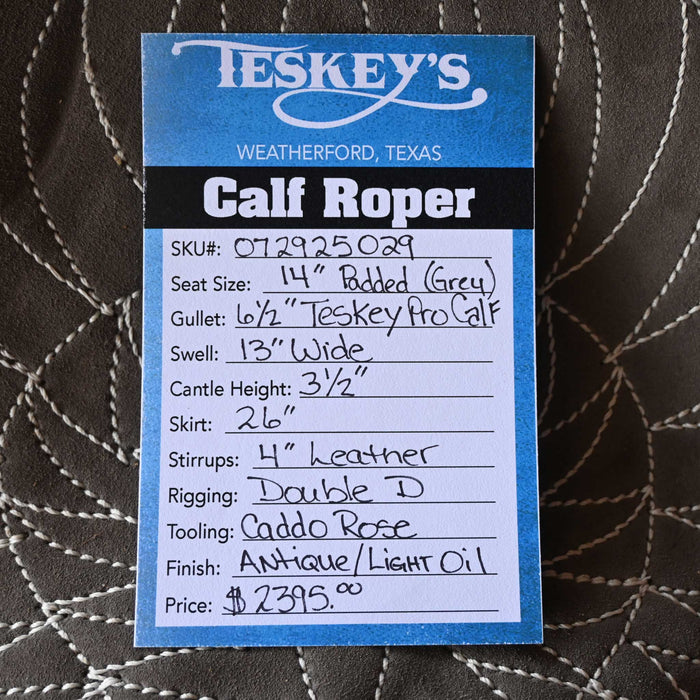 TESKEY'S
WEATHERFORD, TEXAS
Calf Roper
SKU#: 072925029
Seat Size: 14" Padded (Grey)
Gullet: 6 1/2" Teskey Pro Calf
Swell: 13" Wide
Cantle Height: 3 1/2"
Skirt: 26"
Stirrups: 4" Leather
Rigging: Double D
Tooling: Caddo Rose
Finish: Antique/Light Oil
Price: $2395.00